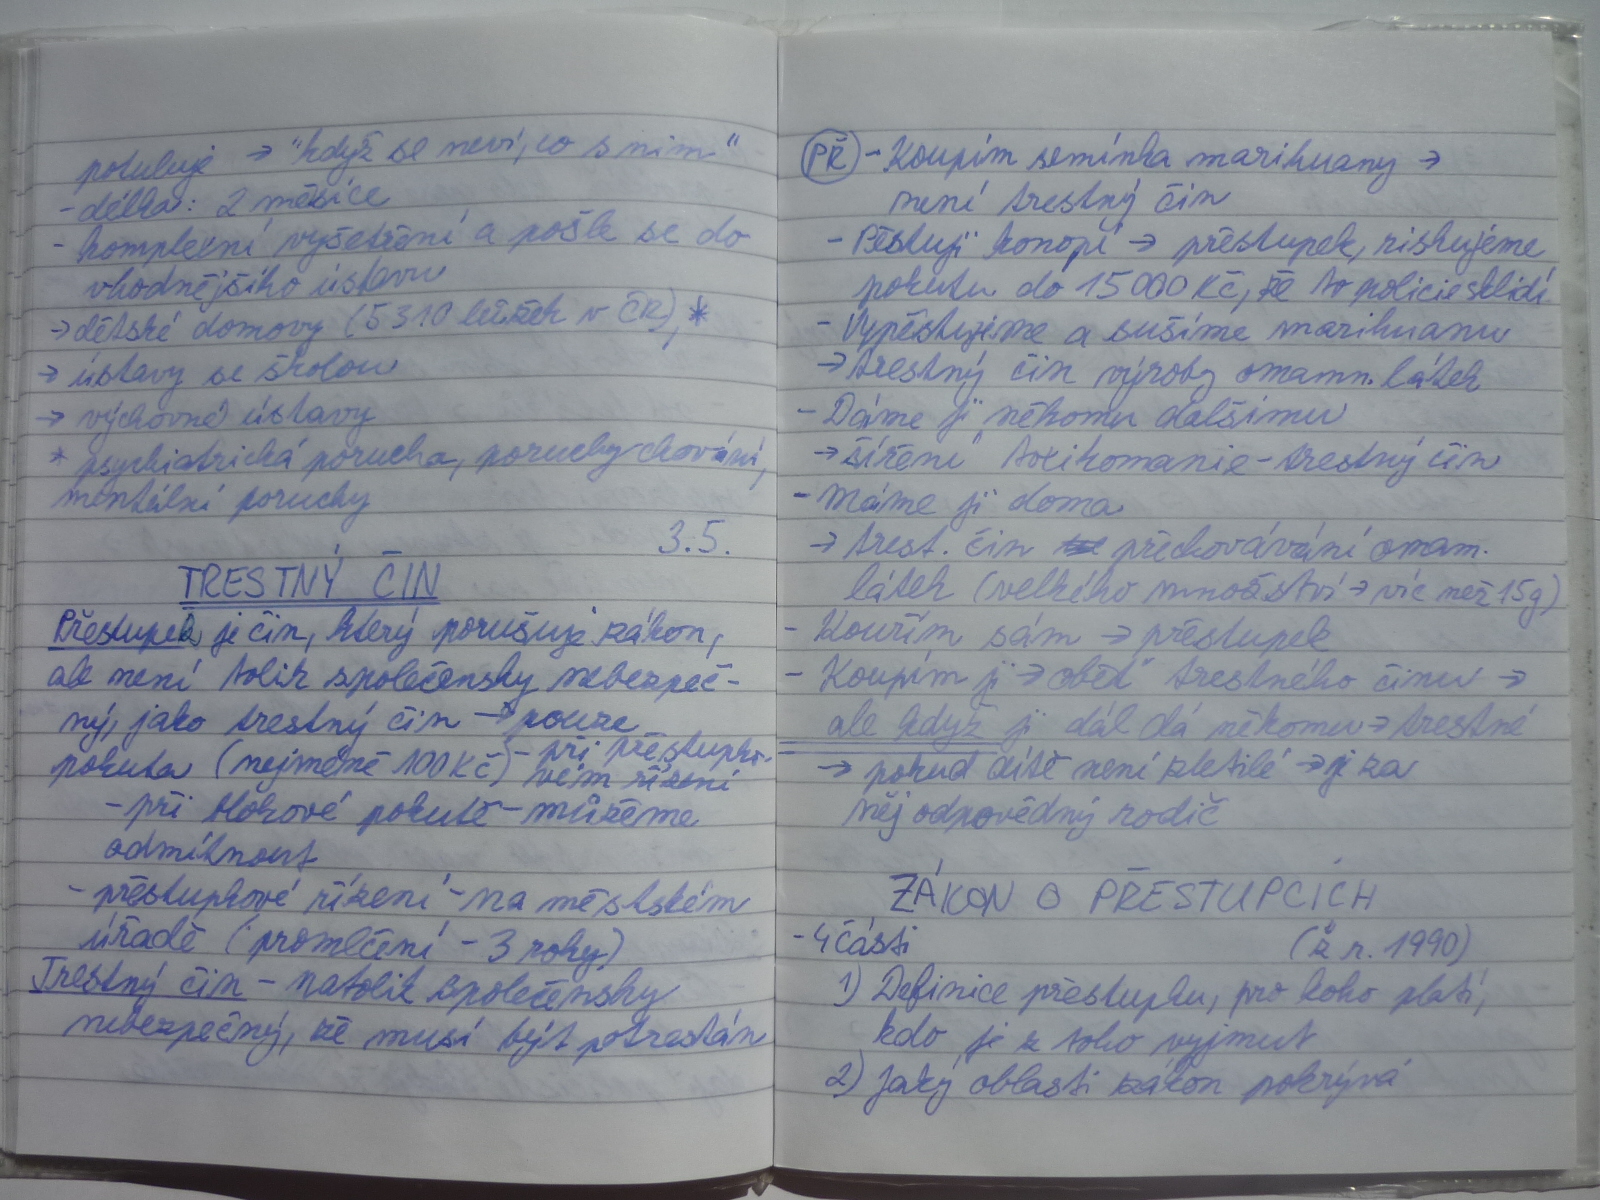 potuluje → "když se neví, co s ním"
- délka: 2 měsíce
- komplexní vyšetření a pošle se do
vhodnějšího ústavu
→ dětské domovy (5310 lůžek v ČR), *
→ ústavy se školou
→ výchovné ústavy
* psychiatrická porucha, poruchy chování,
mentální poruchy
3.5.
TRESTNÝ ČIN
Přestupek je čin, který porušuje zákon,
ale není tolik společensky nebezpeč-
ný, jako trestný čin → pouze
pokuta (nejméně 100 Kč) - při přestupko-
vém řízení
- při blokové pokutě - můžeme
odmítnout
- přestupkové řízení - na městském
úřadě (promlčení - 3 roky)
Trestný čin - natolik společensky
nebezpečný, že musí být potrestán
PŘ - Koupím semínka marihuany →
není trestný čin
- Pěstuji konopí → přestupek, riskujeme
pokutu do 15 000 Kč, že to policie sklidí
- Vypěstujeme a sušíme marihuanu
→ trestný čin výroby omamn. látek
- Dáme ji někomu dalšímu
→ šíření toxikomanie - trestný čin
- Máme ji doma
→ trest. čin přechovávání omam.
látek (velkého množství → víc než 15g)
- Kouřím sám → přestupek
- Koupím ji → "oběť" trestného činu →
ale když ji dál dá někomu → trestné
→ pokud dítě není zletilé → je za
něj odpovědný rodič
ZÁKON O PŘESTUPCÍCH
- 4 části (z r. 1990)
1) Definice přestupku, pro koho platí,
kdo je z toho vyjmut
2) Jaký oblasti zákon pokrývá